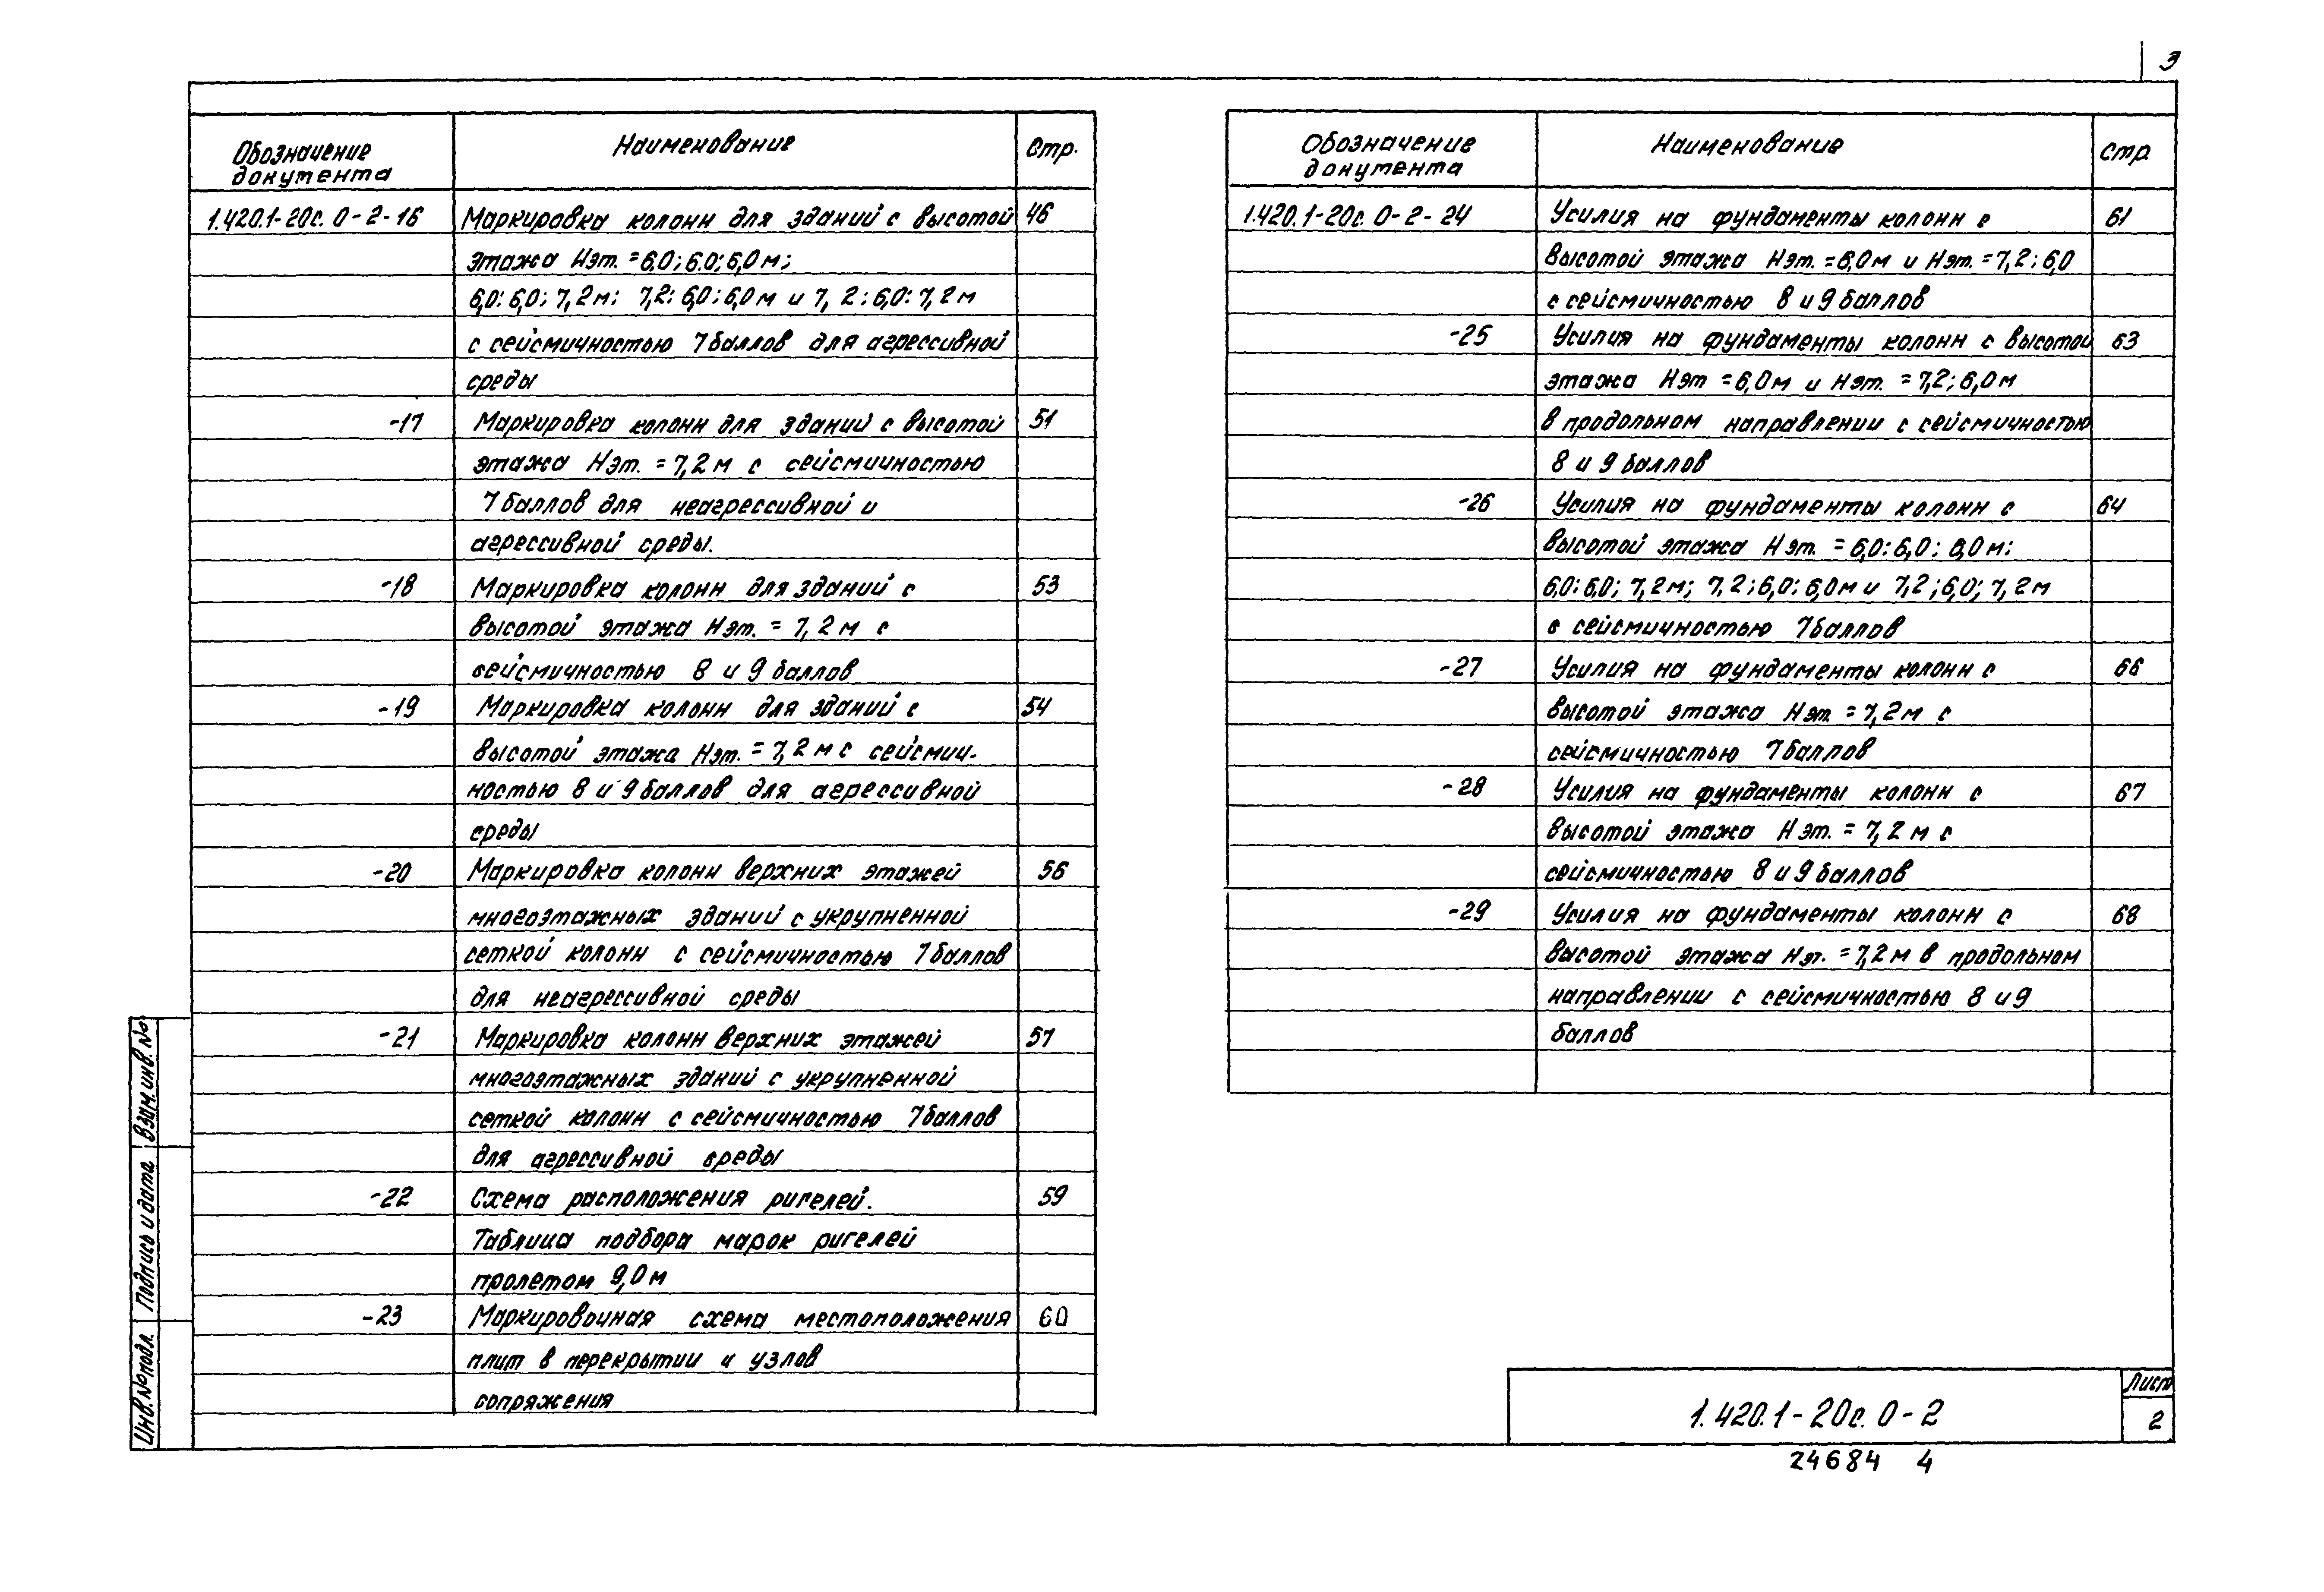 3
Обозначение документа Наименование Стр.
1.420.1-20с. 0-2-16 Маркировка колонн для зданий с высотой 46
этажа Нэт. = 6.0; 6.0; 6,0 м;
6,0; 6,0; 7,2 м; 7,2; 6,0; 6,0 м и 7,2; 6,0; 7,2 м
с сейсмичностью 7 баллов для агрессивной
среды
-17 Маркировка колонн для зданий с высотой 51
этажа Нэт. = 7,2 м с сейсмичностью
7 баллов для неагрессивной и
агрессивной среды.
-18 Маркировка колонн для зданий с 53
высотой этажа Нэт. = 7,2 м с
сейсмичностью 8 и 9 баллов
-19 Маркировка колонн для зданий с 54
высотой этажа Нэт. = 7,2 м с сейсмич-
ностью 8 и 9 баллов для агрессивной
среды
-20 Маркировка колонн верхних этажей 56
многоэтажных зданий с укрупненной
сеткой колонн с сейсмичностью 7 баллов
для неагрессивной среды
-21 Маркировка колонн верхних этажей 57
многоэтажных зданий с укрупненной
сеткой колонн с сейсмичностью 7 баллов
для агрессивной среды
-22 Схема расположения ригелей. 59
Таблица подбора марок ригелей
пролетом 9,0 м
-23 Маркировочная схема местоположения 60
плит в перекрытии и узлов
сопряжения
Обозначение документа Наименование Стр
1.420.1-20с. 0-2-24 Усилия на фундаменты колонн с 61
высотой этажа Нэт. = 6,0 м и Нэт. = 7,2; 6,0
с сейсмичностью 8 и 9 баллов
-25 Усилия на фундаменты колонн с высотой 63
этажа Нэт = 6,0 м и Нэт. = 7,2; 6,0 м
в продольном направлении с сейсмичностью
8 и 9 баллов
-26 Усилия на фундаменты колонн с 64
высотой этажа Нэт. = 6,0; 6,0; 6,0 м;
6,0; 6,0; 7,2 м; 7,2; 6,0; 6,0 м и 7,2; 6,0; 7,2 м
с сейсмичностью 7 баллов
-27 Усилия на фундаменты колонн с 66
высотой этажа Нэт. = 7,2 м с
сейсмичностью 7 баллов
-28 Усилия на фундаменты колонн с 67
высотой этажа Нэт. = 7,2 м с
сейсмичностью 8 и 9 баллов
-29 Усилия на фундаменты колонн с 68
высотой этажа Нэт. = 7,2 м в продольном
направлении с сейсмичностью 8 и 9
баллов
Взам. инв. №
Подпись и дата
Инв. № подл.
1.420.1-20с. 0-2
Лист
2
24684 4